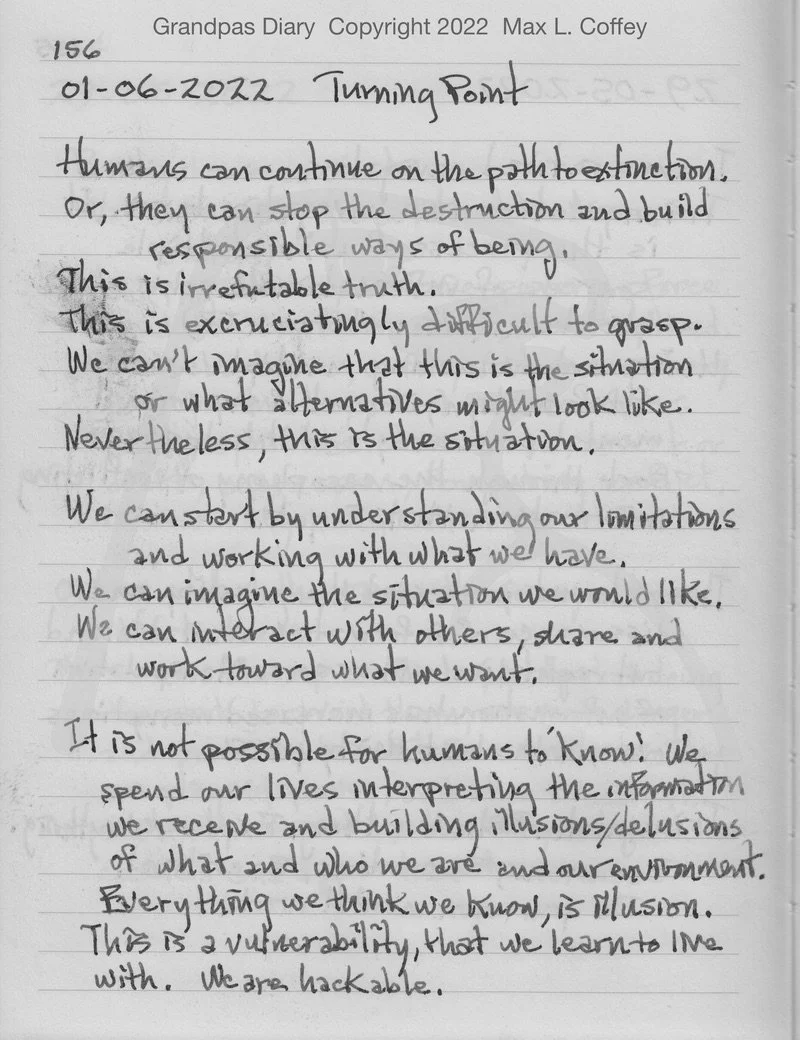 Grandpas Diary Copyright 2022 Max L. Coffey
156
01-06-2022 Turning Point
Humans can continue on the path to extinction.
Or, they can stop the destruction and build
responsible ways of being.
This is irrefutable truth.
This is excruciatingly difficult to grasp.
We can't imagine that this is the situation
or what alternatives might look like.
Nevertheless, this is the situation.
We can start by understanding our limitations
and working with what we have.
We can imagine the situation we would like.
We can interact with others, share and
work toward what we want.
It is not possible for humans to 'know'. We
spend our lives interpreting the information
we receive and building illusions/delusions
of what and who we are and our environment.
Everything we think we know, is illusion.
This is a vulnerability, that we learn to live
with. We are hackable.